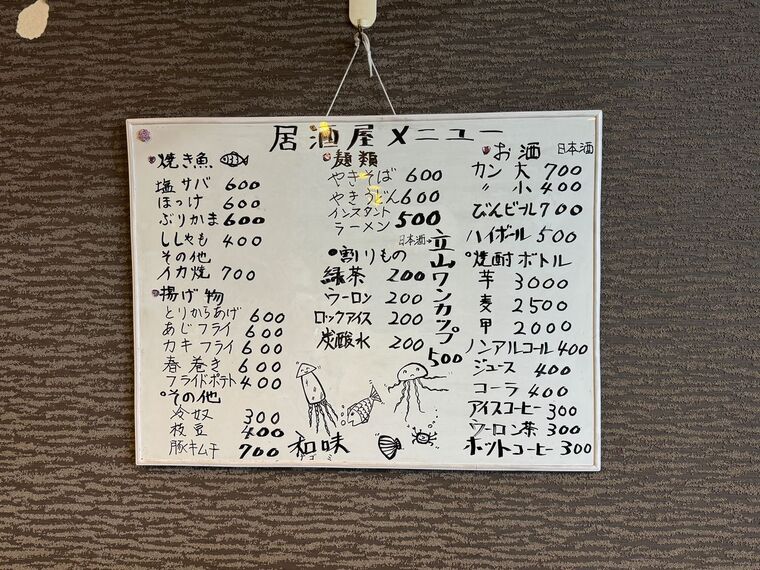 居酒屋メニュー
焼き魚
塩サバ 600
ほっけ 600
ぶりかま 600
ししゃも 400
その他
イカ焼 700
揚げ物
とりからあげ 600
あじフライ 600
カキフライ 600
春巻き 600
フライドポテト 400
その他
冷奴 300
枝豆 400
豚キムチ 700
麺類
やきそば 600
やきうどん 600
インスタント
ラーメン 500
日本酒→立山ワンカップ 500
割りもの
緑茶 200
ウーロン 200
ロックアイス 200
炭酸水 200
和味
お酒 日本酒
カン 大 700
〃 小 400
びんビール 700
ハイボール 500
焼酎ボトル
芋 3000
麦 2500
甲 2000
ノンアルコール 400
ジュース 400
コーラ 400
アイスコーヒー 300
ウーロン茶 300
ホットコーヒー 300